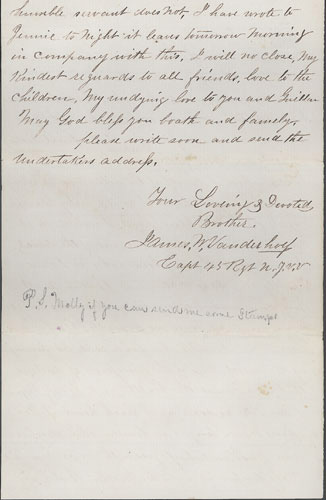 humble servant does not, I have wrote to
Jennie to night it leaves tomorrow morning
in company with this, I will no close, My
Kindest reguards to all friends, love to the
children, My undying love to you and
May God bless you boath and family,
please write soon and send the
Undertakers address.
Your Loveing & Devoted
Brother.
James, W, Vanderhoef
Capt 45 Rgt N.Y.V.V
P.S. Molly if you can send me some Stamps